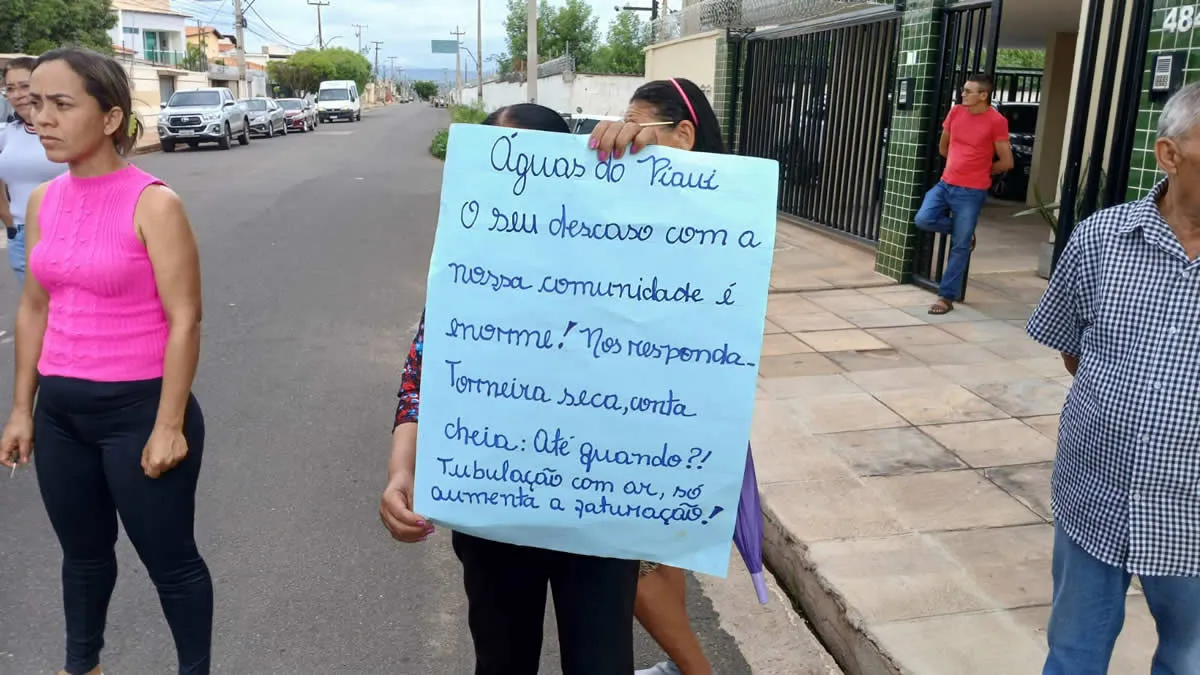 Águas do Piaui
O seu descaso com a
nossa comunidade é
enorme! Nos responda-
Torneira seca, conta
cheia: Até quando?!
Tubulação com ar, só
aumenta a faturação!
48